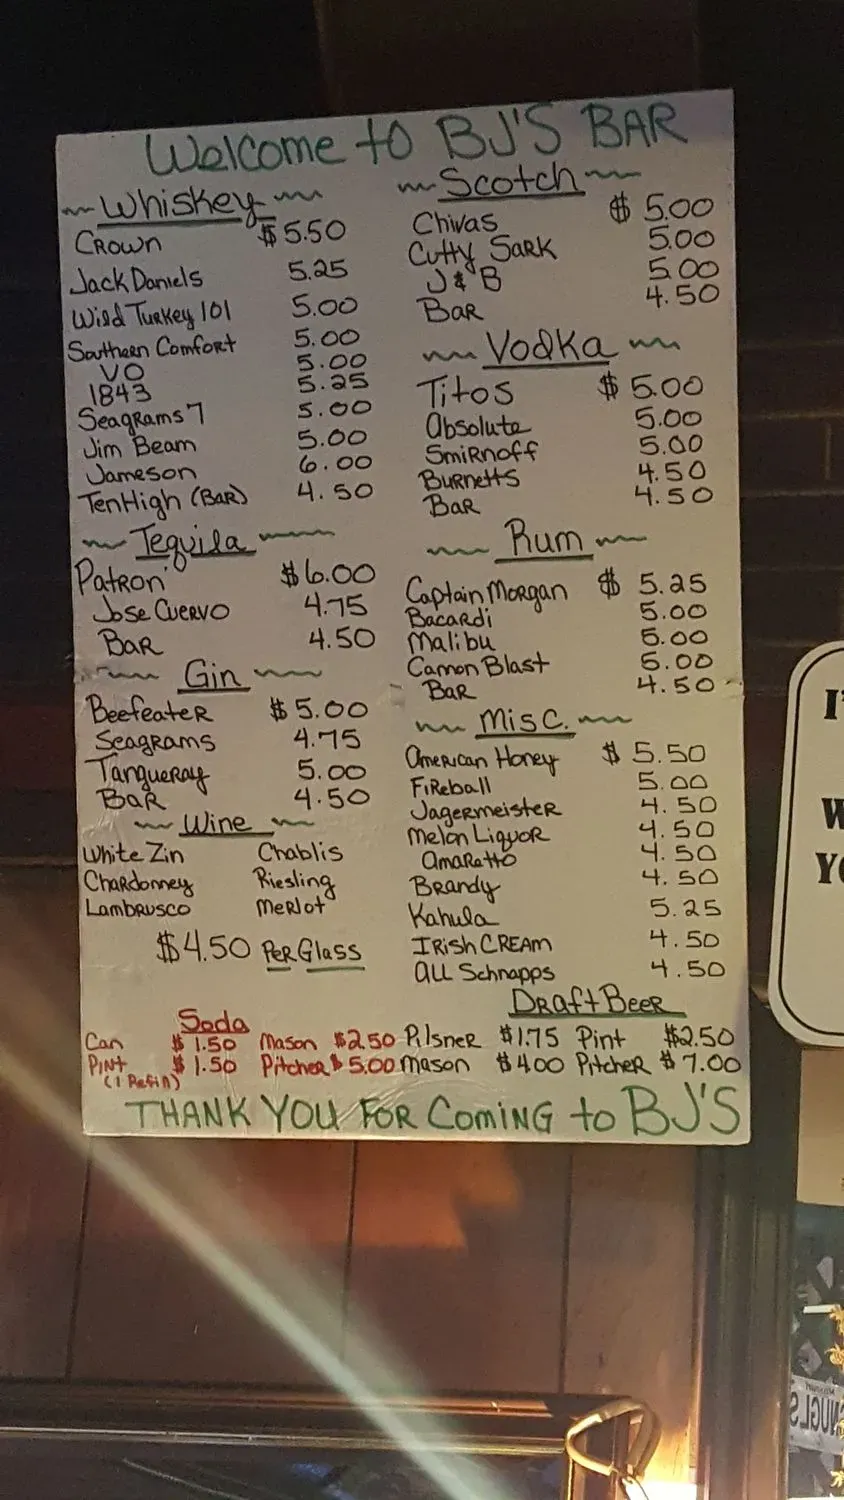 Welcome to BJ'S BAR
Whiskey
Crown $5.50
Jack Daniels 5.25
Wild Turkey 101 5.00
Southern Comfort 5.00
VO 5.00
1843 5.25
Seagrams 7 5.00
Jim Beam 5.00
Jameson 6.00
TenHigh (BAR) 4.50
Tequila
Patron $6.00
Jose Cuervo 4.75
BAR 4.50
Gin
Beefeater $5.00
Seagrams 4.75
Tanqueray 5.00
BAR 4.50
Wine
White Zin Chablis
Chardonney Riesling
Lambrusco Merlot
$4.50 Per Glass
Scotch
Chivas $5.00
Cutty Sark 5.00
J & B 5.00
Bar 4.50
Vodka
Titos $5.00
Absolute 5.00
Smirnoff 5.00
Burnetts 4.50
Bar 4.50
Rum
Captain Morgan $5.25
Bacardi 5.00
Malibu 5.00
Cannon Blast 5.00
Bar 4.50
Misc.
American Honey $5.50
Fireball 5.00
Jagermeister 4.50
Melon Liquor 4.50
Amaretto 4.50
Brandy 4.50
Kahula 5.25
Irish CREAM 4.50
ALL Schnapps 4.50
Soda
Can $1.50 Mason $2.50
Pint $1.50 Pitcher $5.00
(1 Refill)
Draft Beer
Pilsner $1.75 Pint $2.50
Mason $4.00 Pitcher $7.00
THANK YOU FOR Coming to BJ'S